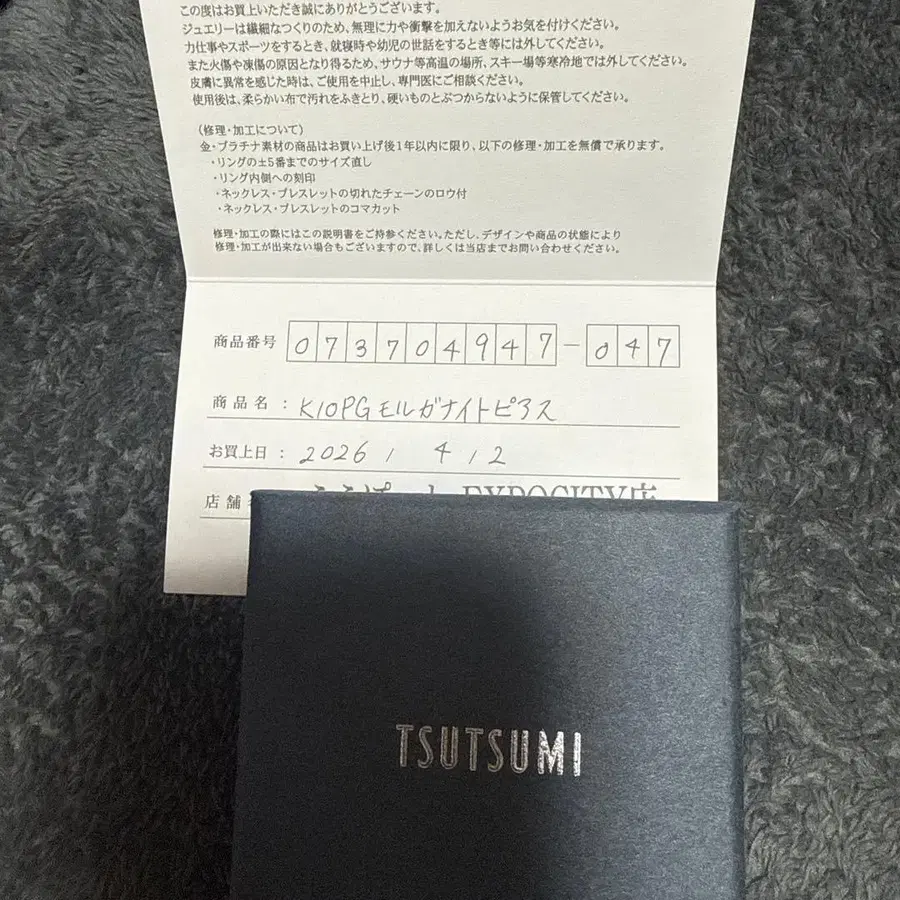 この度はお買上いただき誠にありがとうございます。
ジュエリーは繊細なつくりのため、無理に力や衝撃を加えないようお気を付けください。
力仕事やスポーツをするとき、就寝時や幼児の世話をするとき等には外してください。
また火傷や凍傷の原因となり得るため、サウナ等高温の場所、スキー場等寒冷地では外してください。
皮膚に異常を感じた時は、ご使用を中止し、専門医にご相談ください。
使用後は、柔らかい布で汚れをふきとり、硬いものとぶつからないように保管してください。
(修理・加工について)
金・プラチナ素材の商品はお買い上げ後1年以内に限り、以下の修理・加工を無償で承ります。
・リングの±5番までのサイズ直し
・リング内側への刻印
・ネックレス・ブレスレットの切れたチェーンのロウ付
・ネックレス・ブレスレットのコマカット
修理・加工の際にはこの説明書をご持参ください。ただし、デザインや商品の状態により
修理・加工が出来ない場合もございますので、詳しくは当店までお問い合わせください。
商品番号 073704947-047
商品名：K10PGモルガナイトピアス
お買上日：2026 / 4 / 2
店舗 EXPOCITY店
TSUTSUMI